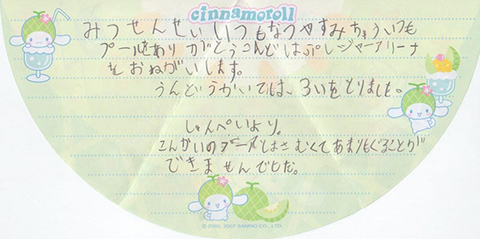 cinnamoroll
みつせんせいいつもなつやすみちょういつも
プールをありがとうこんどはプレジャーアリーナ
をおねがいします。
うんどうかいでは、3いをとりました。
しゅんぺいより。
こんかいのプールはさむくてあまりもぐることが
できませんでした。
© 2001, 2007 SANRIO CO., LTD.